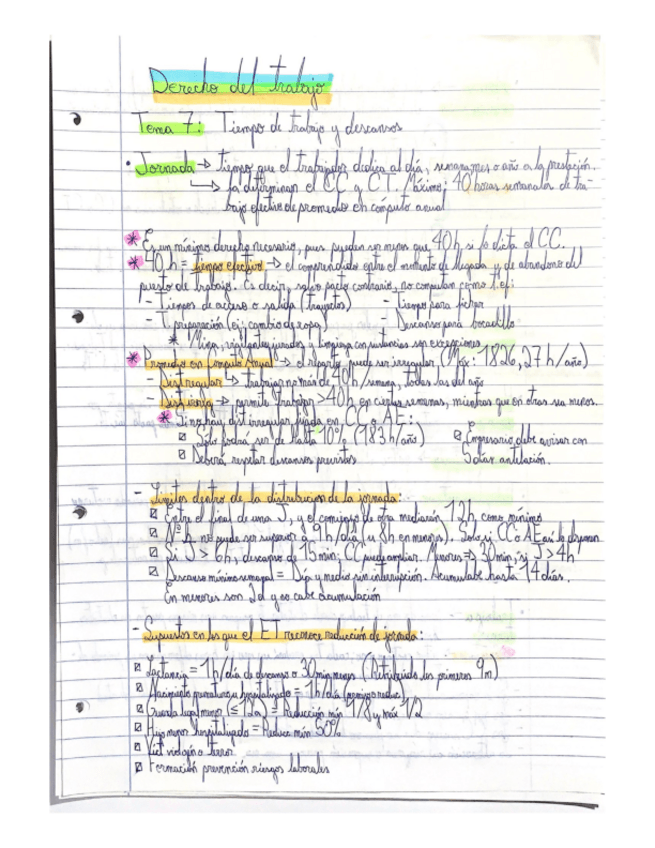 Derecho del trabajo
Tema 7: Tiempo de trabajo y descansos
• Jornada → tiempo que el trabajador dedica al día, semana, mes o año a la prestación.
↳ la determinan el CC y CT. Máximo: 40 horas semanales de tra-
bajo efectivo de promedio en cómputo anual
* Es un mínimo derecho necesario, pues pueden ser menos que 40h si lo dicta el CC.
* 40h = tiempo efectivo → el comprendido entre el momento de llegada y de abandono del
puesto de trabajo. Es decir, salvo pacto contrario, no computan como t.ef:
- Tiempos de acceso o salida (trayectos) - Tiempo para fichar
- T. preparación (ej: cambio de ropa) - Descanso para bocadillo
* Mina, vigilantes jurados y limpieza con sustancias son excepciones
* Promedio en Cómputo Anual → el reparto puede ser irregular, (Máx: 1826,27h/año)
- Dist regular → trabajar no más de 40h/semana, todas las del año
- Dist irreg → permite trabajar >40h en ciertas semanas, mientras que en otras sea menos.
* Si no hay dist irregular fijada en CC o AE:
☑ Sólo podrá ser de hasta 10% (183h/año) ☑ Empresario debe avisar con
☑ Deberá respetar descansos previstos 5 días antelación.
- Límites dentro de la distribución de la jornada:
☑ Entre el final de una J, y el comienzo de otra mediarán 12h como mínimo
☑ Nº h. no puede ser superior a 9h/día (u 8h en menores). Solo si CC o AE así lo disponen
☑ Si J > 6h, descanso de 15min; CC puede ampliar. Menores ⇒ 30min, si J > 4h
☑ Descanso mínimo semanal = Día y medio sin interrupción. Acumulable hasta 14 días.
En menores son 2d y no cabe acumulación
- Supuestos en los que el ET reconoce reducción de jornada:
☑ Lactancia = 1h/día de descanso o 30min menos (Retribuido los primeros 9m)
☑ Nacimiento prematuro u hospitalizado = 1h/día
☑ Guarda legal menor (≤ 12a) = Reducción mín 1/8 y máx 1/2
☑ Hijo menor hospitalizado = Reducc mín 50%
☑ Vict viol gén o terror.
☑ Formación prevención riesgos laborales